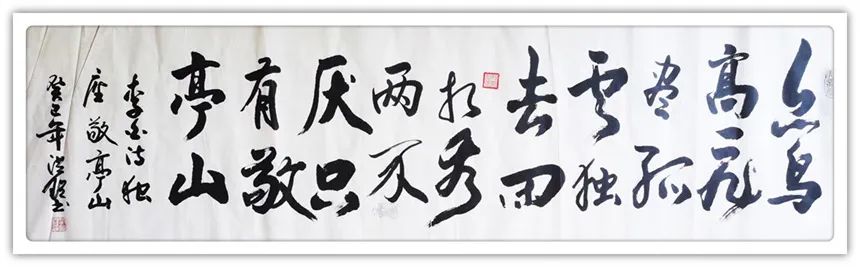 众鸟
高飛
尽孤
雲独
去闲
相看
两不
厌只
有敬
亭山
李白诗独
座敬亭山
癸巳年